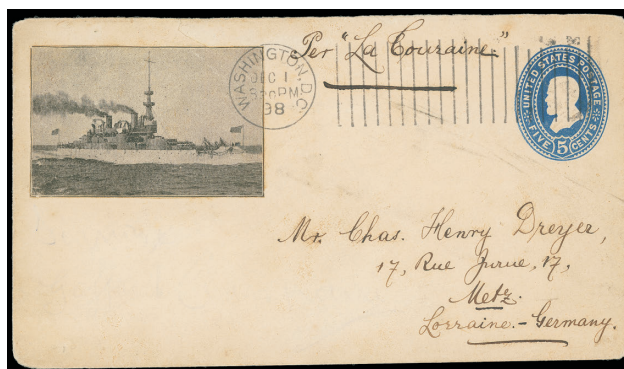 Per "La Touraine."
WASHINGTON, D.C.
DEC 1
PM
98
UNITED STATES POSTAGE
FIVE 5 CENTS
Mr. Chas. Henry Dreyer,
17, Rue 17,
Metz.
Lorraine. - Germany.